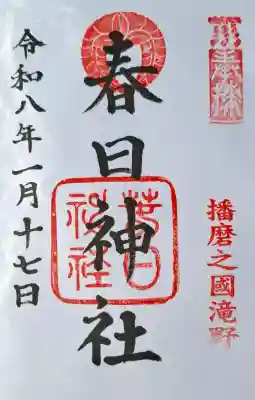 播磨之國滝野
春日神社
春日神社
令和八年一月十七日